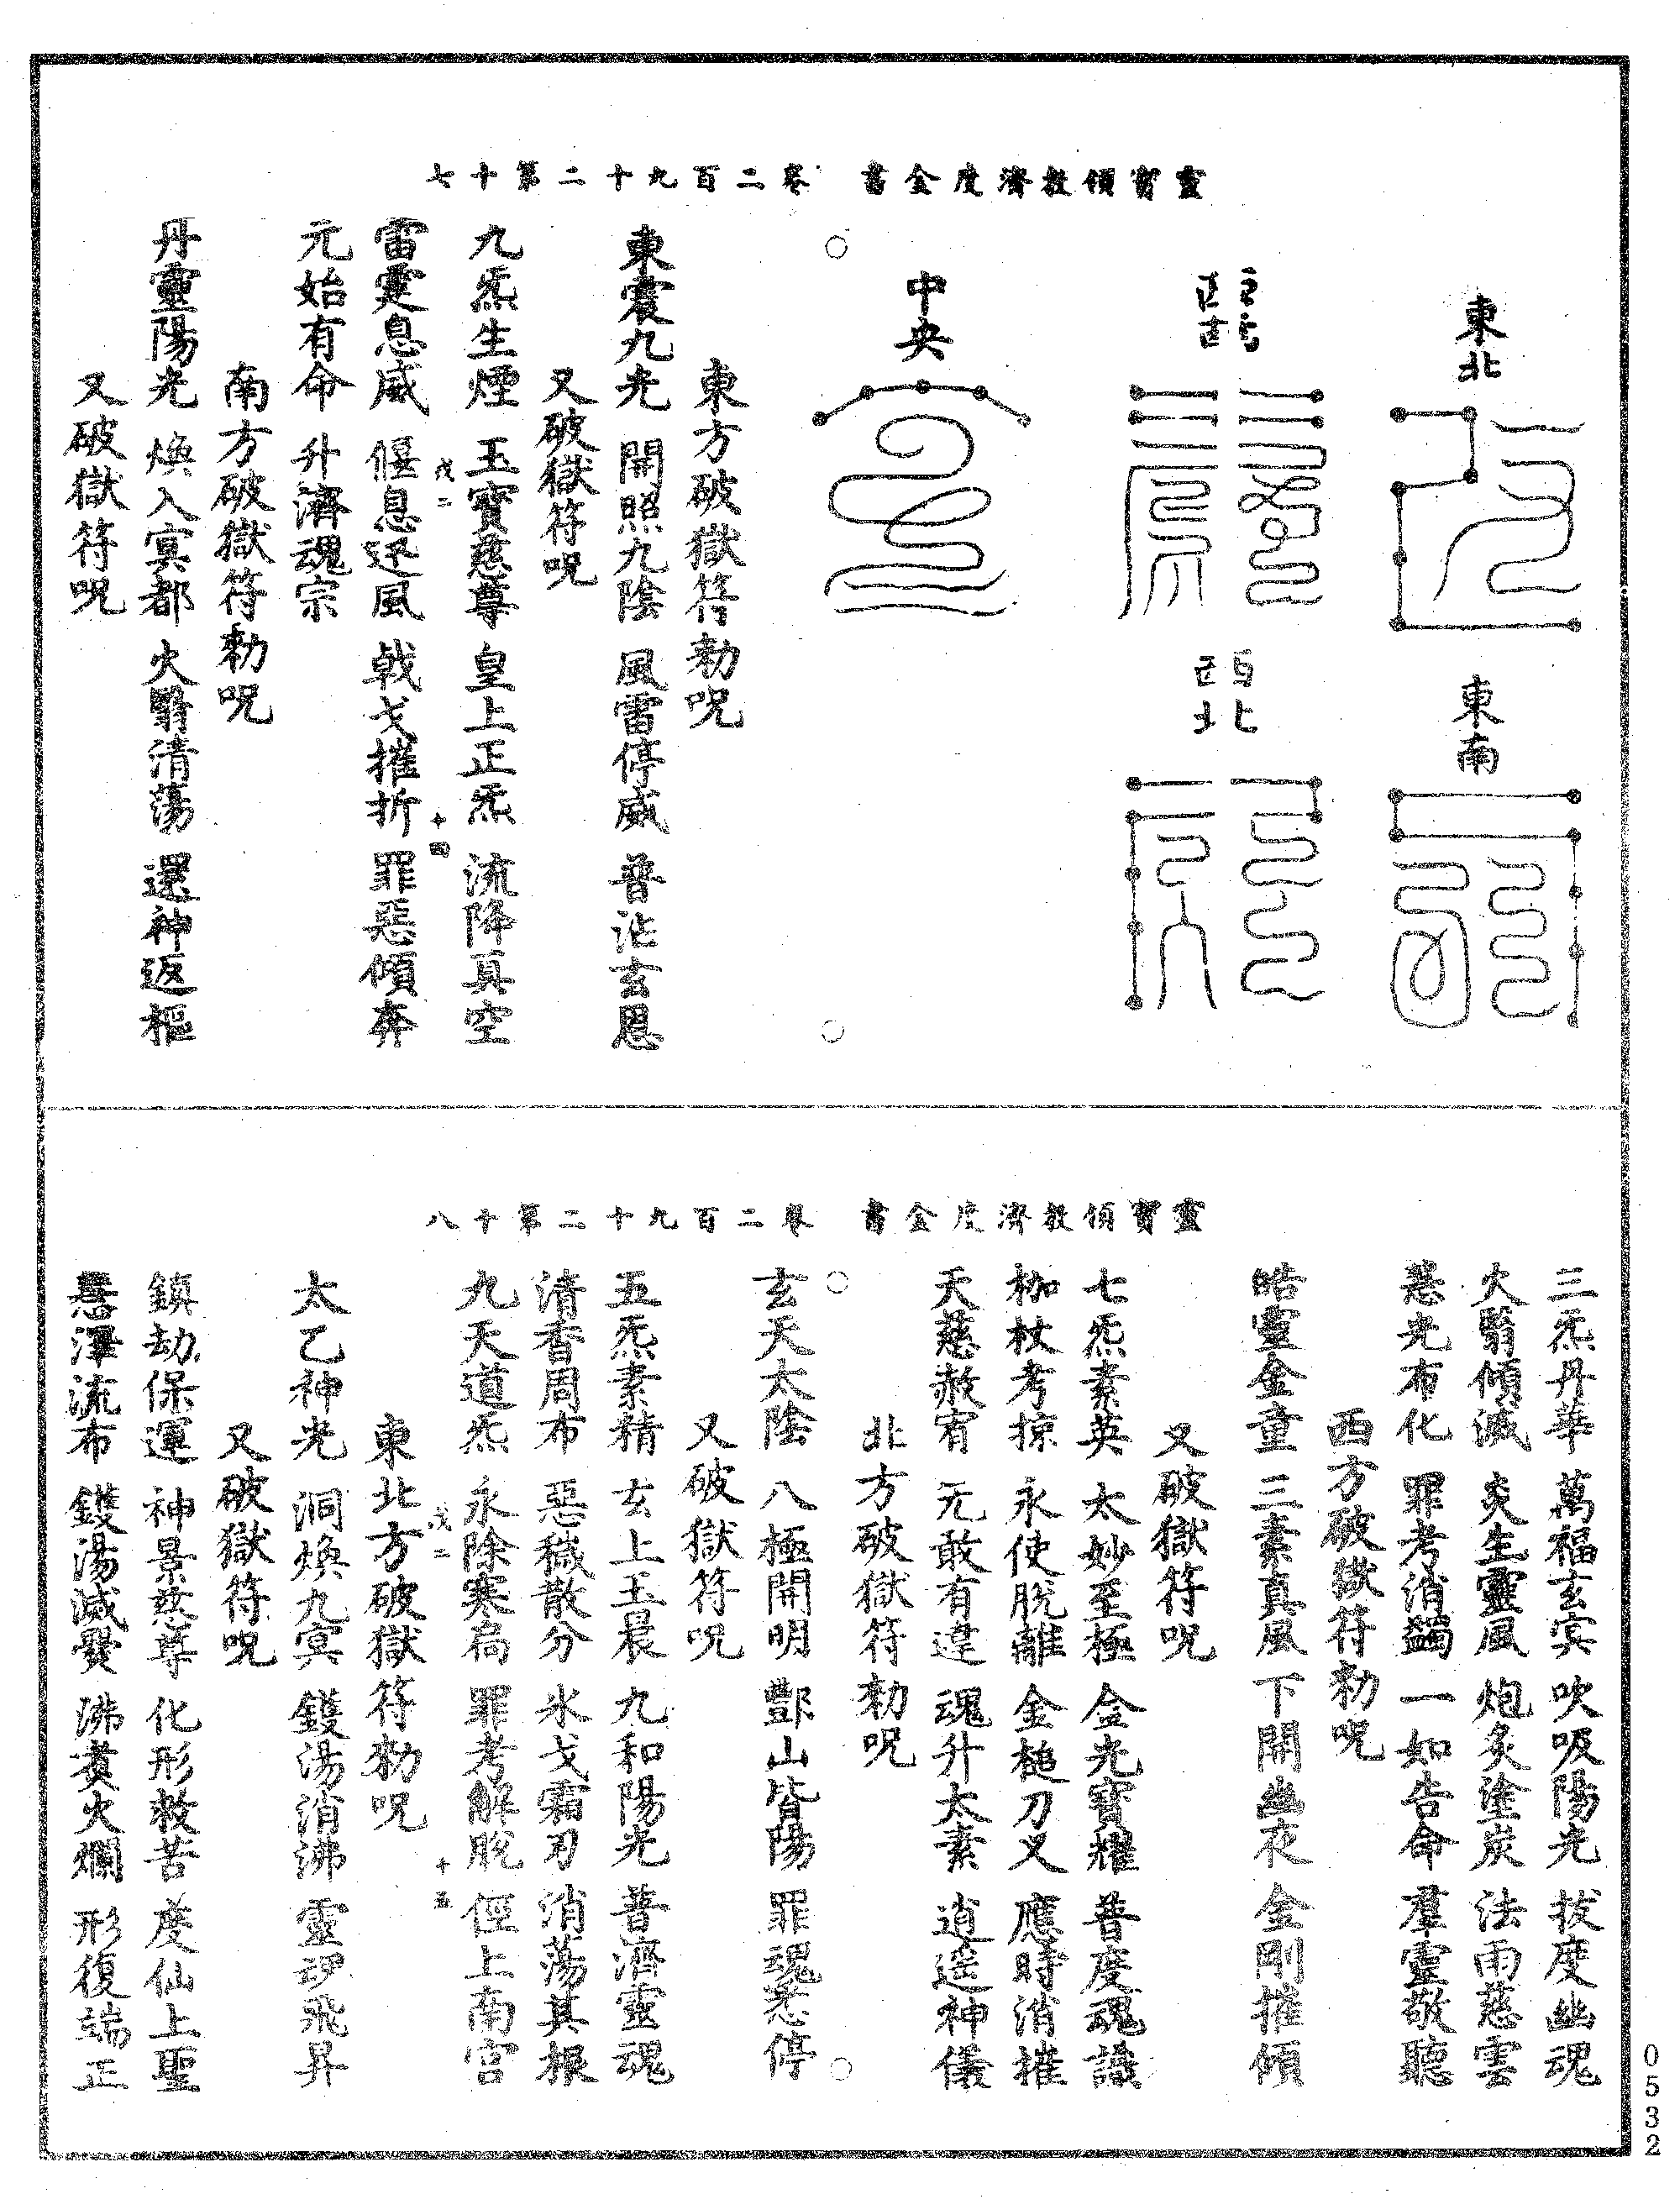 靈寶領教濟度金書　卷二百九十二第十七
東北
東南
西北
中央
東方破獄符勑呪
東震九光　開照九陰　風雷停威　普沾玄恩
又破獄符呪
九炁生煙　玉寶慈尊　皇上正炁　流降真空
戊二　十四
雷霆息威　偃息迅風　戟戈摧折　罪惡傾奔
元始有命　升濟魂宗
南方破獄符勑呪
丹靈陽光　煥入冥都　火翳清蕩　還神返樞
又破獄符呪
靈寶領教濟度金書　卷二百九十二第十八
三炁丹華　萬福玄冥　吹吸陽光　拔度幽魂
火翳傾滅　炎生靈風　炮炙塗炭　法雨慈雲
慈光布化　罪考消蠲　一如告命　羣靈敬聽
西方破獄符勑呪
皓靈金童　三素真風　下開幽夜　金剛摧傾
又破獄符呪
七炁素英　太妙至極　金光寶耀　普度魂識
枷杖考掠　永使脫離　金槌刀叉　應時消摧
天慈赦宥　无敢有違　魂升太素　逍遥神儀
北方破獄符勑呪
玄天太陰　八極開明　酆山皆陽　罪魂悉停
又破獄符呪
五炁素精　玄上玉晨　九和陽光　普濟靈魂
清香周布　惡穢散分　氷戈霜刃　消蕩其根
九天道炁　永除寒扃　罪考解脫　徑上南宮
戊二　十五
東北方破獄符勑呪
太乙神光　洞煥九冥　鑊湯消沸　靈魂飛昇
又破獄符呪
鎮劫保運　神景慈尊　化形救苦　度仙上聖
慈澤流布　鑊湯滅爨　沸煑火爛　形復端正
0532